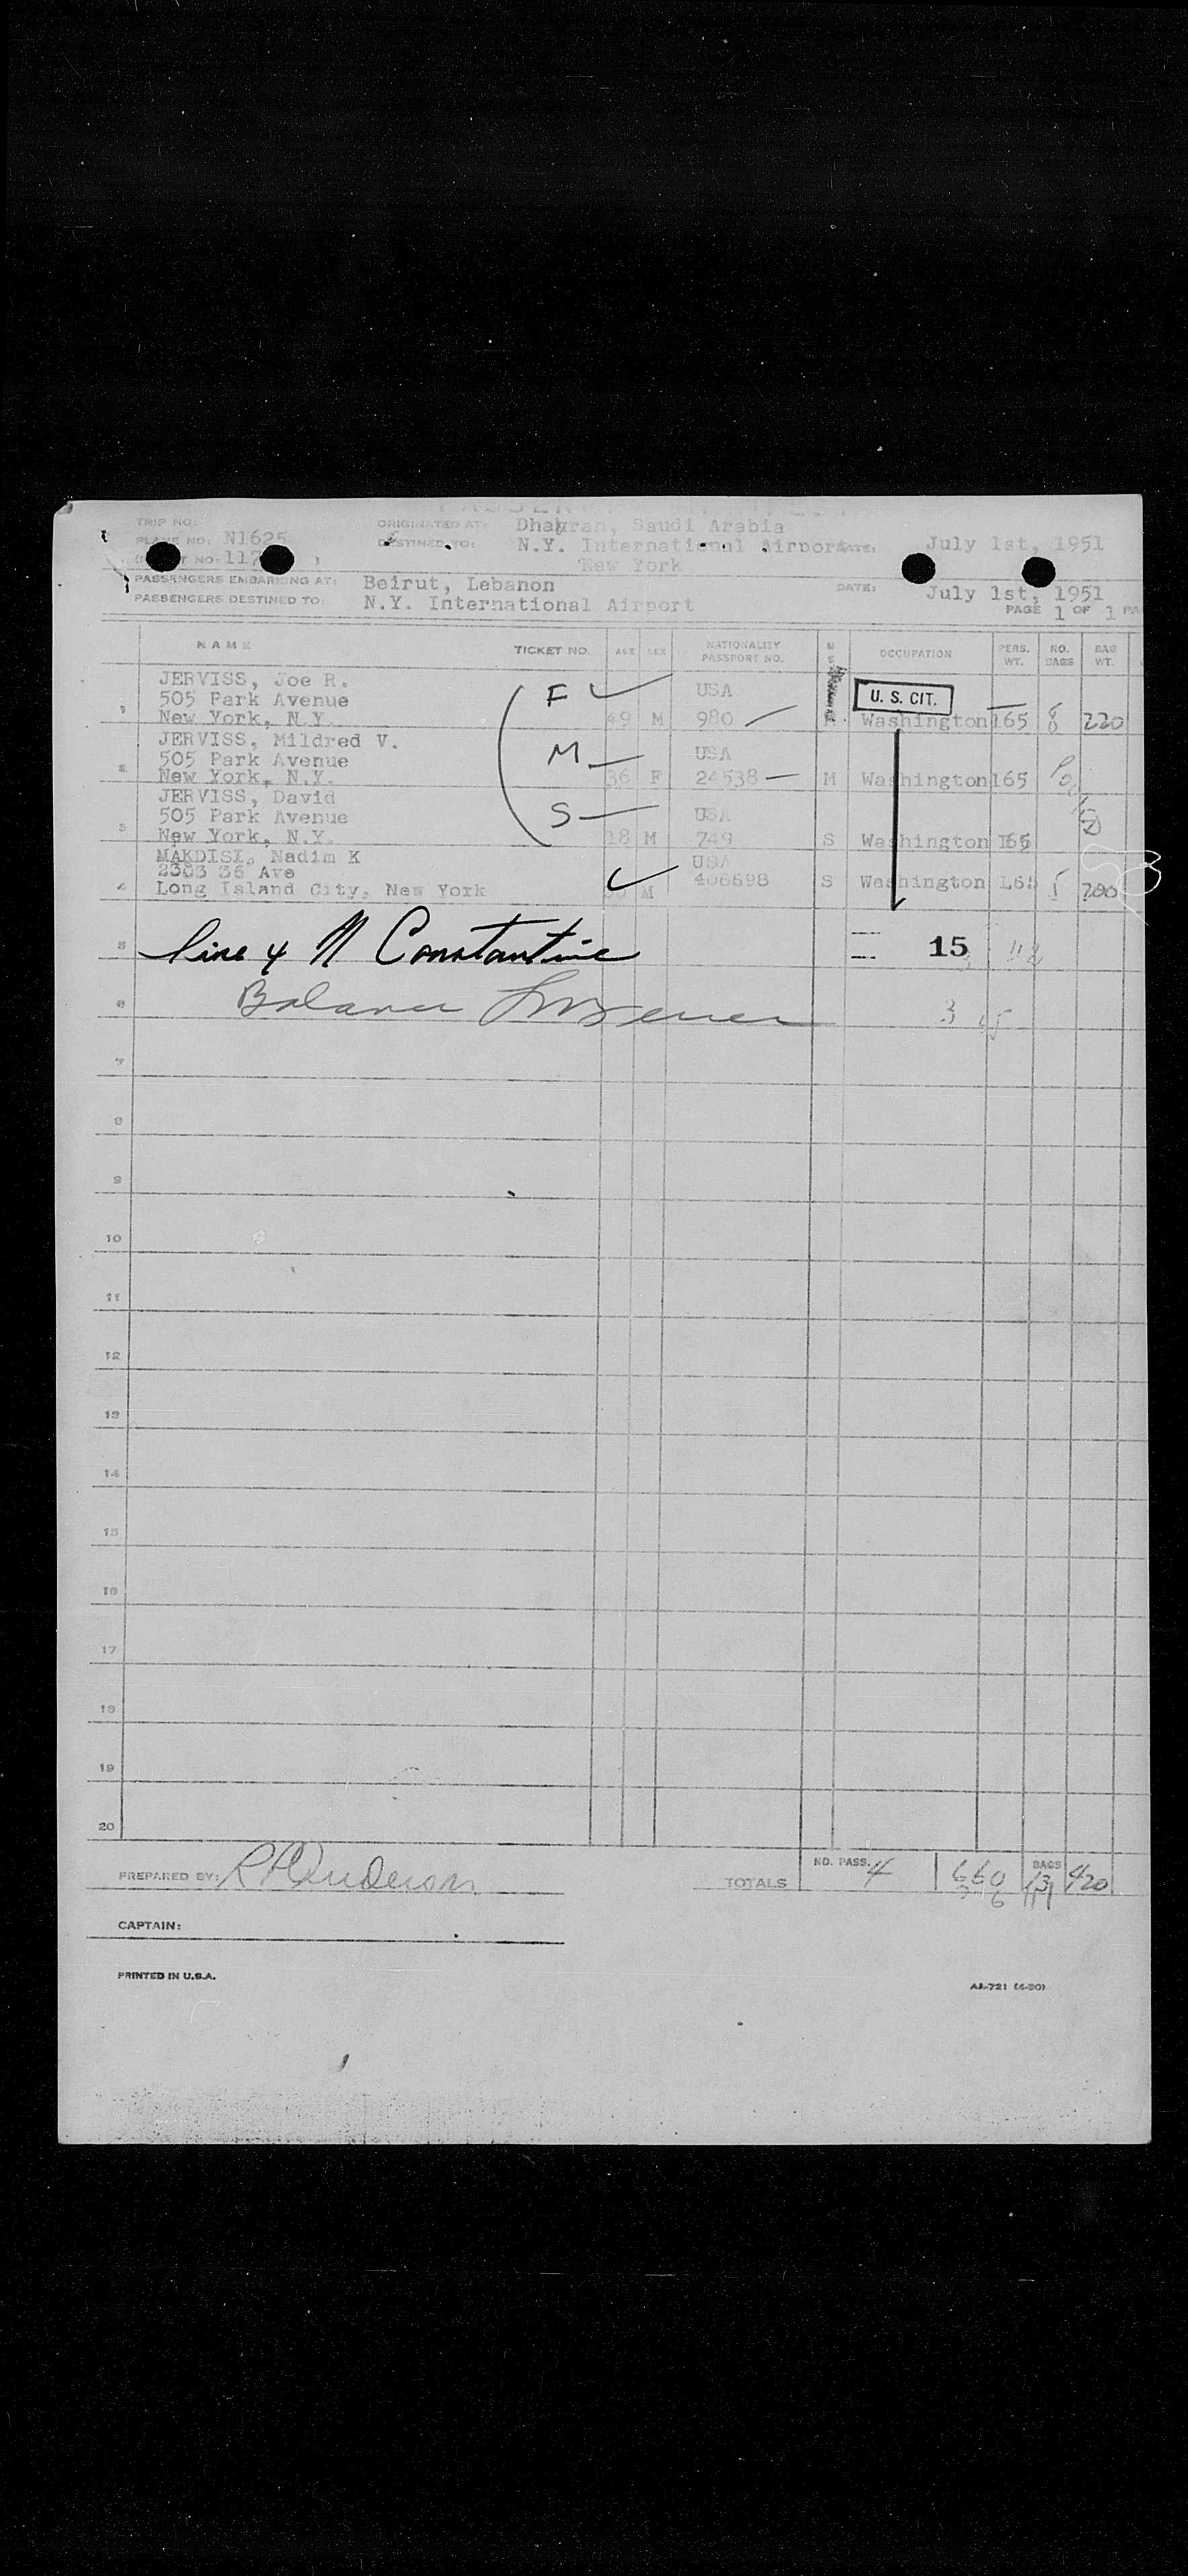 TRIP NO:
ORIGINATED AT: Dhahran, Saudi Arabia
PLANE NO: N1625
DESTINED TO: N.Y. International Airport DATE: July 1st, 1951
New York
PASSENGERS EMBARKING AT: Beirut, Lebanon DATE: July 1st, 1951
PASSENGERS DESTINED TO: N.Y. International Airport PAGE 1 OF 1 PA
NAME TICKET NO. AGE SEX NATIONALITY PASSPORT NO. OCCUPATION PERS. WT. NO. BAGS BAG WT.
JERVISS, Joe R. F USA U. S. CIT.
505 Park Avenue
1 New York, N.Y. 49 M 980 Washington 165 8 220
JERVISS, Mildred V. M USA
505 Park Avenue
2 New York, N.Y. 36 F 24538 M Washington 165
JERVISS, David S USA
505 Park Avenue
3 New York, N.Y. 18 M 749 S Washington 165
MAKDISI, Nadim K USA
36 Ave
4 Long Island City, New York M S Washington 165 5 200
5 line 4 N Constantine 15
6 Balance 3
7
8
9
10
11
12
13
14
15
16
17
18
19
20
PREPARED BY: TOTALS NO. PASS. 4 660 BAGS 13 420
CAPTAIN:
PRINTED IN U.S.A.